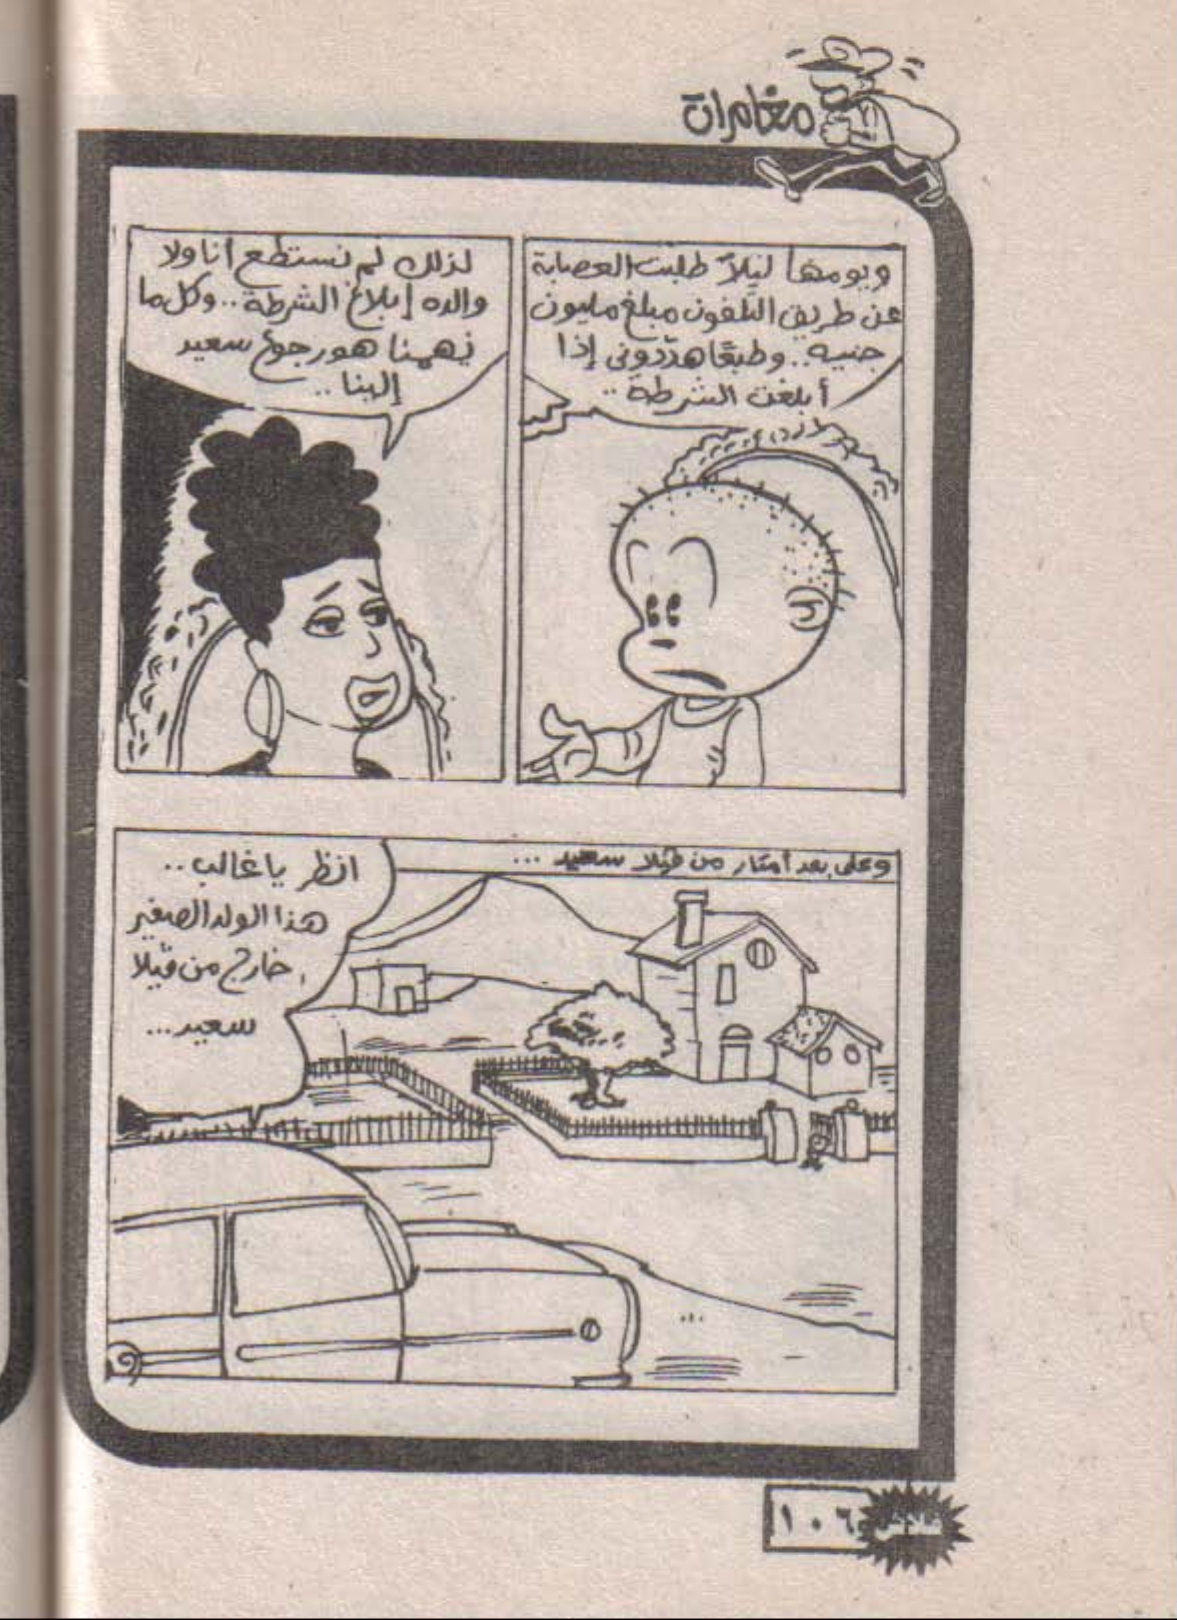 مغامرات
ويومها ليلاً طلبت العصابة
عن طريق التلفون مبلغ مليون
جنيه.. وطبعًا هددونى إذا
أبلغت الشرطة ..
لذلك لم نستطع أنا ولا
والده إبلاغ الشرطة.. وكل ما
يهمنا هو رجوع سعيد
إلينا ..
وعلى بعد أمتار من ڤيلا سعيد ...
انظر يا غالب ..
هذا الولد الصغير
خارج من ڤيلا
سعيد ...
١٠٦